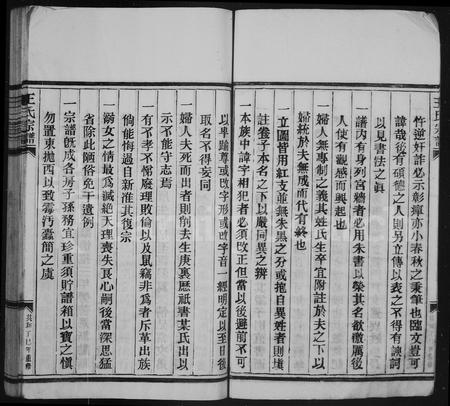 忤逆奸詐必示彰癉亦小春秋之秉筆也臨文豈可
諱哉後有碩德之人則另立傳以表之不得有諛詞
以見書法之眞
一譜內有身列宮牆者必用朱書以榮其名欲激厲後
人使有觀感而興起也
一婦人無專制之義其姓氏生卒宜附註於夫之下以
婦統於夫無成而代有終也
一立圖皆用紅支並無朱黑之分或抱自異姓者則填
註養子本名之下以嚴同異之辨
一本族中諱字相犯者必須改正但當以後避前不可
以卑踰尊或改字形或改字音一經明定以至日後
取名不得妄同
一婦人夫死而出者則削去生庚裏歷祇書某氏出以
示不能守志焉
一有不孝不悌廢理敗倫以及鼠竊非爲者斥革出族
倘能悔過自新准其復宗
一溺女之情最爲滅絕天理喪失良心嗣後當深思猛
省除此陋俗免干遺例
一宗譜旣成各房子孫務宜珍重須貯譜箱以寶之愼
勿置東拋西以致霉污蠹簡之虞
王氏宗譜
共和丁巳年重修